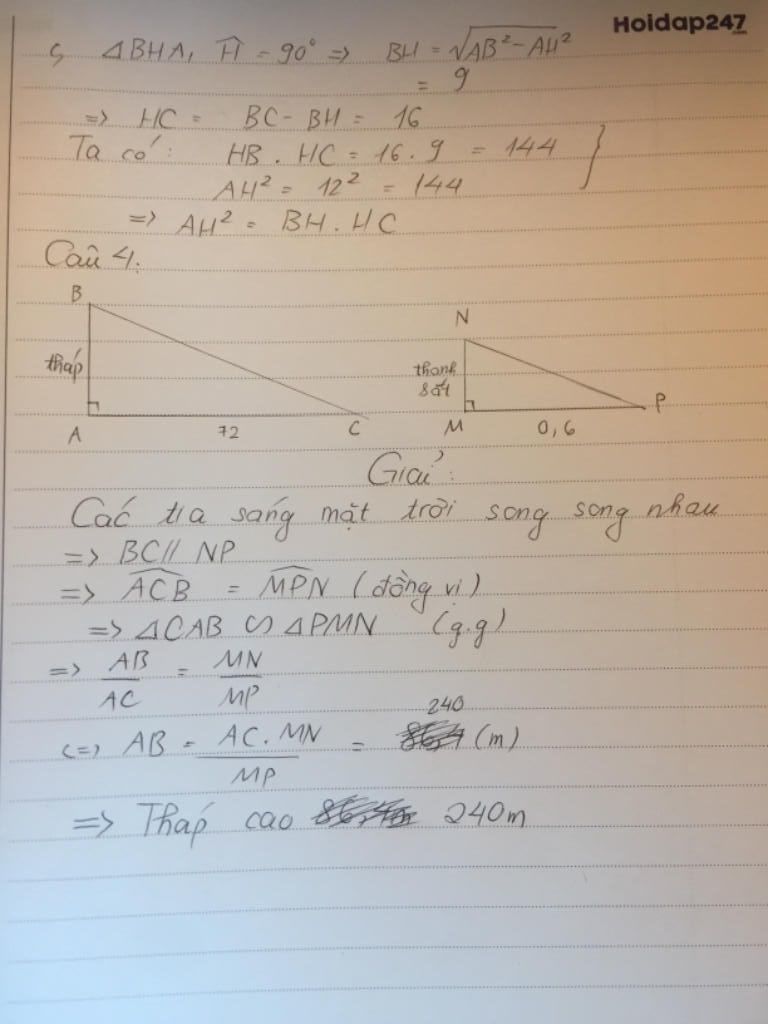 Hoidap247
.com
ς ΔBHA, Ĥ = 90° => BH = √AB² - AH²
= 9
=> HC = BC - BH = 16
Ta có: HB . HC = 16 . 9 = 144
AH² = 12² = 144
=> AH² = BH . HC
Câu 4:
B
N
tháp
thanh sắt
A
72
C
M
0,6
P
Giải:
Các tia sáng mặt trời song song nhau
=> BC // NP
=> ACB = MPN (đồng vị)
=> ΔCAB ∽ ΔPMN (g.g)
=> AB/AC = MN/MP
<=> AB = AC . MN/MP = 240 (m)
=> Tháp cao 240m